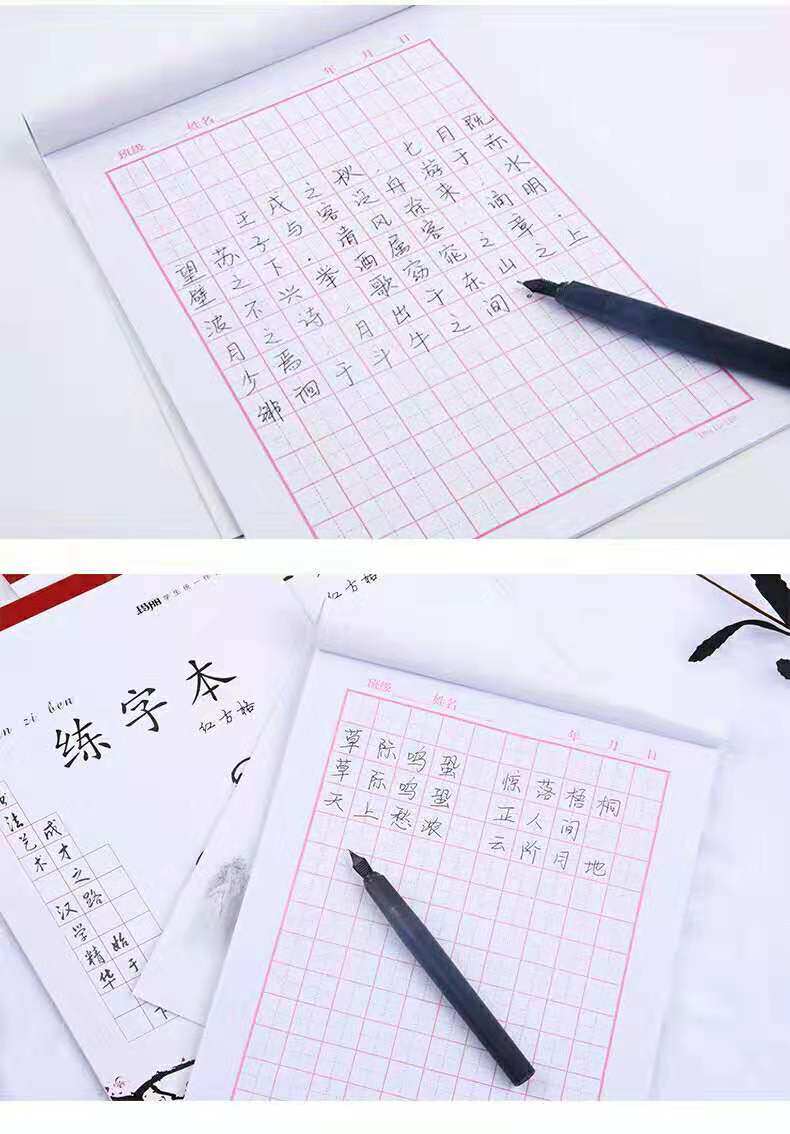 班级 姓名 年 月 日
壬戌之秋，七月既
望苏子与客泛舟游于赤
壁之下.清风徐来.水
波不兴举酒属客.诵明
月之诗，歌窈窕之章.
少焉.月出于东山之上
徘徊于斗牛之间
玛丽 学生统一作
红方格
n zi ben
练字本
红方格
法艺成
术才
之
汉路
学
精始
华于
下
班级 姓名 年 月 日
草际鸣蛩 惊落梧桐
草际鸣蛩 正人间
天上愁浓 云阶月地